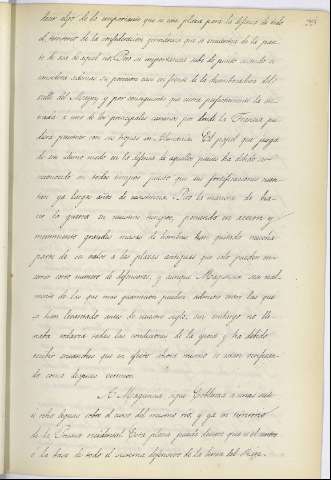 decir algo de la importancia que es una plaza para la defensa de todo
el territorio de la confederacion germánica que se encuentra de la par-
te de acá de aquel rio. Pero su importancia sube de punto cuando se
considera ademas su posicion casi en frente de la desembocadura del
valle del Mayn, y por consiguiente que cierra perfectamente la en-
trada a uno de los principales caminos por donde la Francia pu-
diera penetrar con sus tropas en Alemania. El papel que juega
de un modo en la defensa de aquellos paises ha debido ser
reconocido en todos tiempos puesto que sus fortificaciones cuen-
tan ya largos años de existencia. Pero la manera de ha-
cer la guerra en nuestros tiempos, poniendo en accion y
movimiento grandes masas de hombres han quitado mucha
parte de su valor a las plazas antiguas que solo pueden en-
cerrar corto numero de defensores, y aunque Maguncia sea real-
mente de las que mas guarnicion pueden admitir entre las que
se han levantado antes de nuestro siglo, sin embargo no lle-
naba todavia todas las condiciones de la epoca y ha debido
recibir ensanches que en efecto ahora mismo se están verifican-
do como despues veremos.
A Maguncia sigue Coblenza a unas siete
u ocho leguas sobre el curso del mismo rio, y ya en territorio
de la Prusia occidental. Esta plaza puede decirse que es el centro
o la base de todo el sistema defensivo de la linea del Rhin.